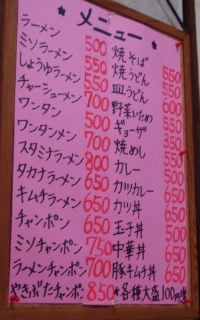 ★メニュー★
ラーメン 500
ミソラーメン 550
しょうゆラーメン 550
チャーシューメン 700
ワンタン 500
ワンタンメン 700
スタミナラーメン 800
タカナラーメン 650
キムチラーメン 650
チャンポン 650
ミソチャンポン 750
ラーメンチャンポン 700
やきぶたチャンポン 850
焼そば
焼うどん 550
皿うどん 650
野菜いため
ギョーザ
焼めし
カレー
カツカレー
カツ丼
玉子丼
中華丼
豚キムチ丼
★各種大盛 100円増